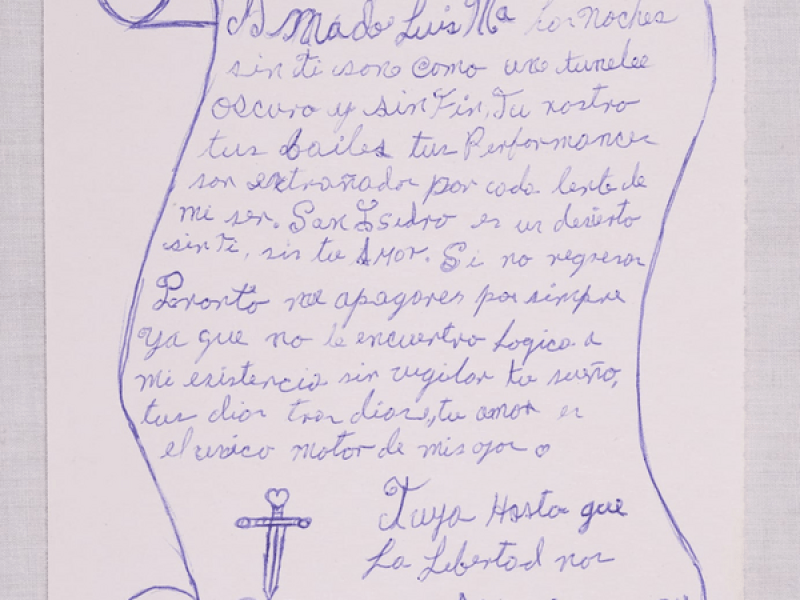 Amado Luis Ma las noches
sin ti son como un tunele
oscuro y sin Fin, Tu rostro
tus bailes tus Performances
son extrañador por cada lente de
mi ser. San Isidro es un desierto
sin ti, sin tu Amor. Si no regresas
Pronto me apagares por simpre
ya que no le encuentro logica a
mi existencia sin vigilar tu sueño,
tus dias tras dias, tu amor es
el unico motor de mis ojos
Tuya Hasta que
La Libertad nos